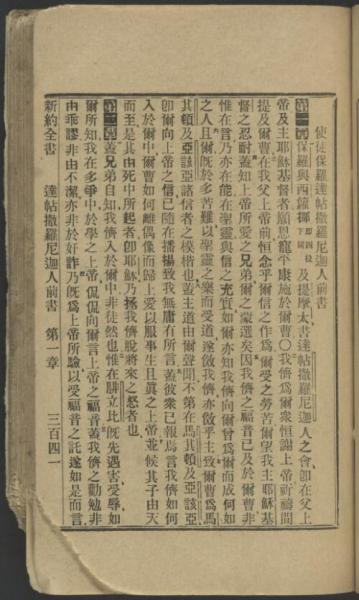 使徒保羅達帖撒羅尼迦人前書
第一章 保羅與西鐳挪即四役下同及提摩太書達帖撒羅尼迦人之會卽在父上
帝及主耶穌基督者願恩寵平康施於爾曹〇我儕爲爾衆恒謝上帝祈禱間
提及爾曹在我父上帝前恒念乎爾信之作爲爾愛之勞苦爾望我主耶穌基
督之忍耐蓋知上帝所愛之兄弟爾之蒙選矣因我儕之福音已及於爾曹非
惟在言乃亦在能在聖靈與信之充實如爾亦知我儕向爾曾爲爾而成何如
之人且爾旣於多苦難以聖靈之樂而受道遂傚我儕亦傚乎主致爾曹爲馬
其頓及亞該亞諸信者之模楷也蓋主道由爾聲聞不第在馬其頓及亞該亞
卽爾向上帝之信已隨在播揚致我無庸有所言蓋彼衆已報焉言我儕如何
入於爾中爾曹如何離偶像而歸上帝以服事生且眞之上帝並候其子由天
而至是其由死中所起者卽耶穌乃拯我儕脫將來之怒者也
第二章 蓋兄弟自知我儕入於爾中非徒然也惟在腓立比旣先遇害受辱如
爾所知我在多爭中於學之上帝侃侃向爾言上帝之福音蓋我儕之勸勉非
由乖謬非由不潔亦非於奸詐乃旣爲上帝所驗以受福音之託遂如是而言
新約全書 達帖撒羅尼迦人前書 第一章 三百四一